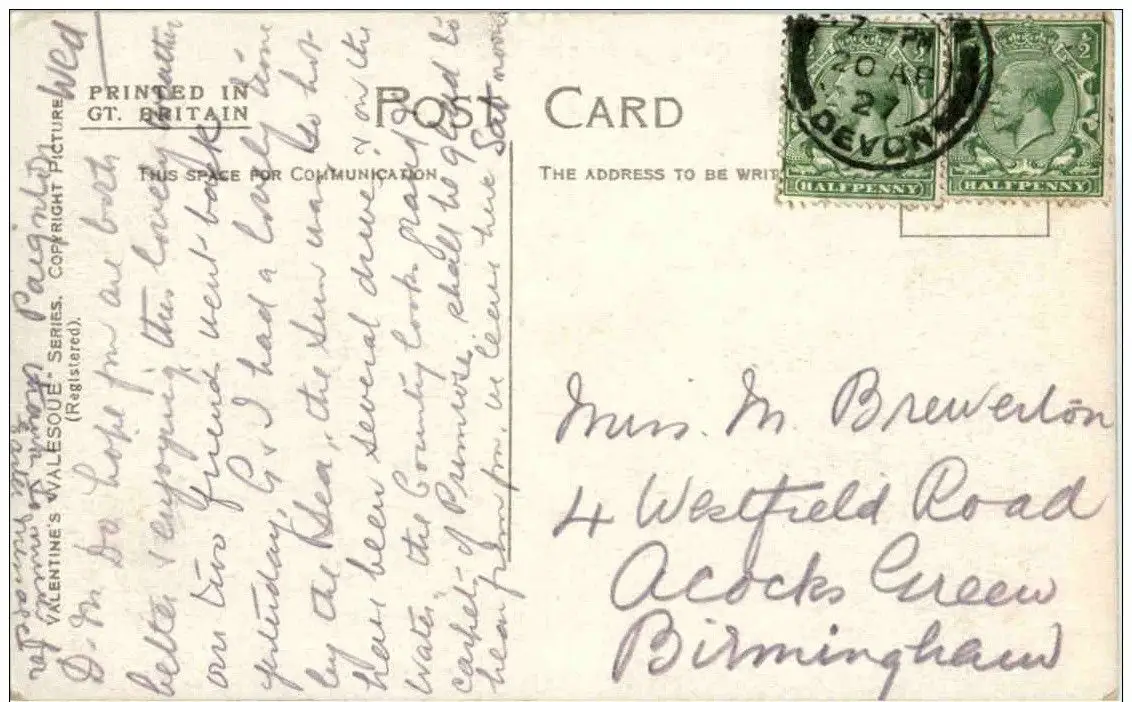 PRINTED IN
GT. BRITAIN
POST CARD
THIS SPACE FOR COMMUNICATION
THE ADDRESS TO BE WRIT
VALENTINE'S "VALESQUE" SERIES. COPYRIGHT PICTURE
(Registered).
HALFPENNY
HALFPENNY
PM
20 AP
27
DEVON
Paignton Wed
Do hope you are both
better & enjoying this lovely weather
our two friends went back
yesterday, G & I had a lovely time
by the Sea, the sun was so hot
have been several drives & on the
water, the Country looks grand
carpet of Primrose, shall be glad to
hear from you. we leave here Sat
Miss. M. Brewerton
4 Westfield Road
Acocks Green
Birmingham